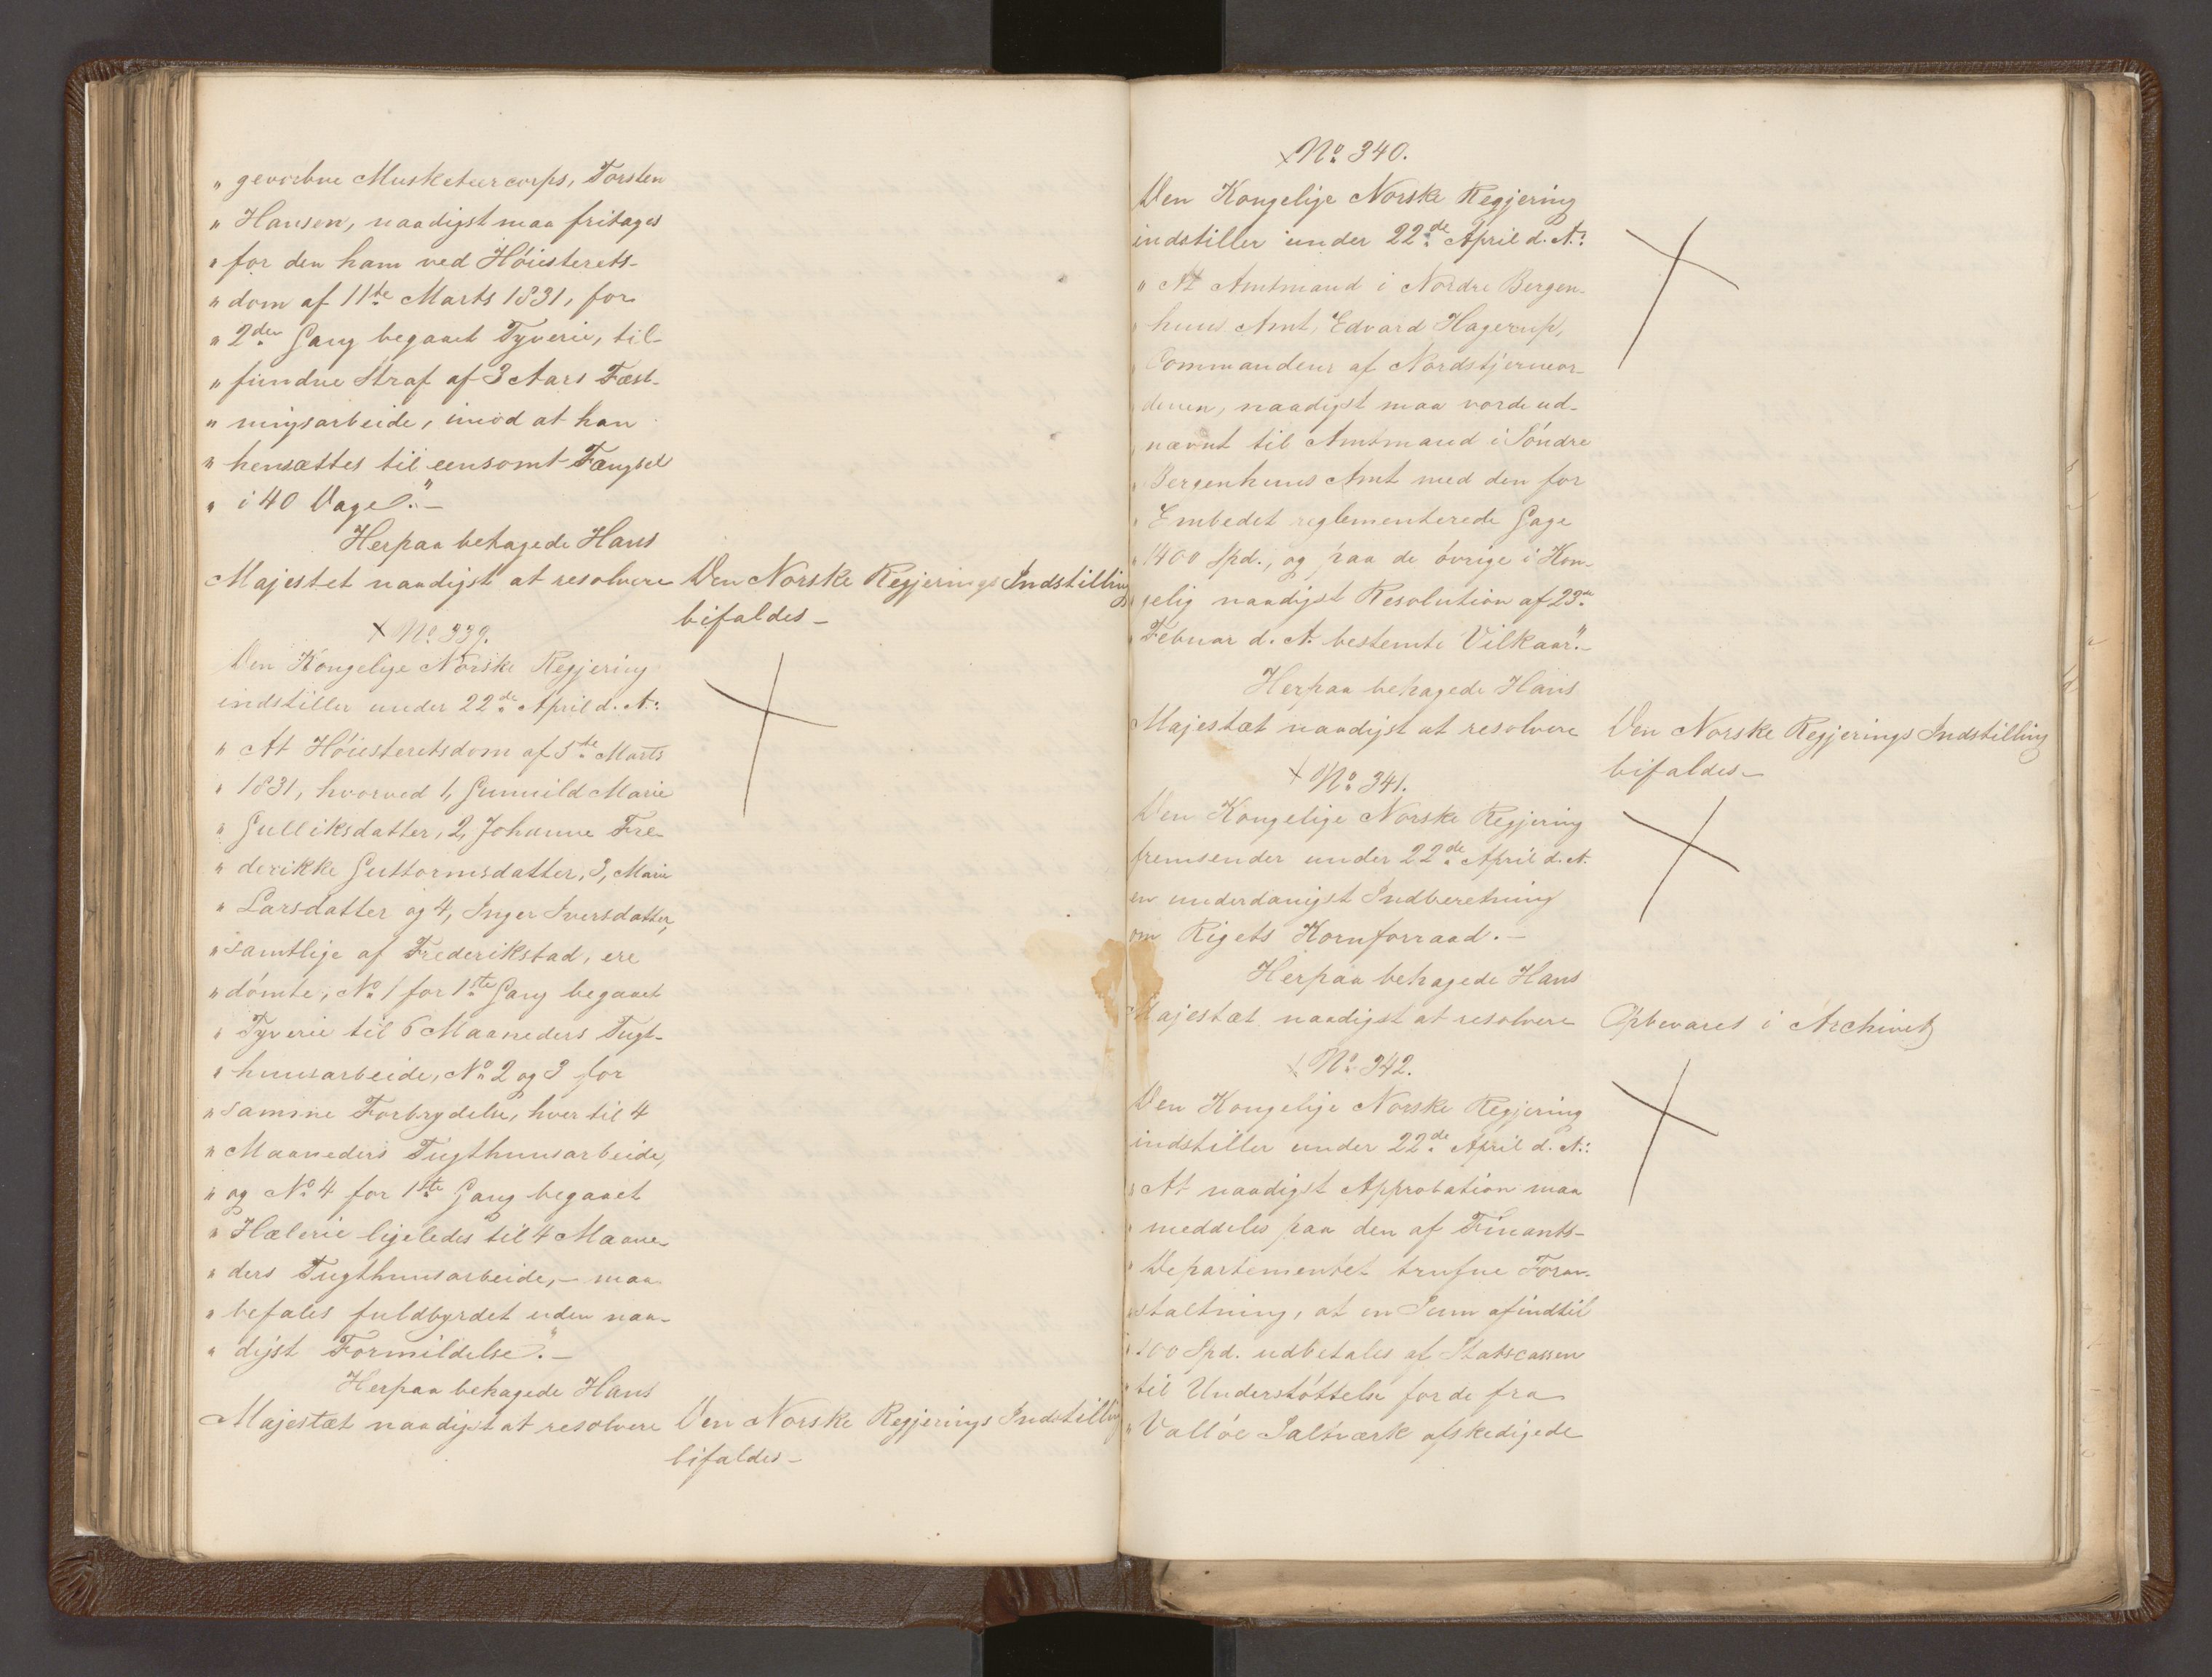 „ gevorbne Musketeercorps, Torsten
„ Hansen, naadigst maa fritages
„ for den ham ved Høiesterets-
„ dom af 11te Marts 1831, for
„ 2den Gang begaaet Tyverie, til-
„ fundne Straf af 3 Aars Fæst-
„ ningsarbeide, imod at han
„ hensættes til eensomt Fængsel
„ i 40 Dage”.-
Herpaa behagede Hans
Majestet naadigst at resolvere Den Norske Regjerings Indstilling
bifaldes-
No 339.
Den Kongelige Norske Regjering
indstiller under 22de April d. A:
„ At Høiesteretsdom af 5te Marts
„ 1831, hvorved 1, Gunnild Marie
„ Gulliksdatter, 2, Johanne Fre-
„ derikke Guttormsdatter, 3, Marie
„ Larsdatter og 4, Inger Iversdatter,
„ samtlige af Frederikstad, ere
„ dømte, No 1 for 1ste Gang begaaet
„ Tyverie til 6 Maaneders Tugt-
„ huusarbeide, No 2 og 3 for
„ samme Forbrydelse, hver til 4
„ Maaneders Tugthuusarbeide,
„ og No 4 for 1ste Gang begaaet
„ Hælerie ligeledes til 4 Maane-
„ ders Tugthuusarbeide,- maa
„ befales fuldbyrdet uden naa-
„ digst Formildelse”.-
Herpaa behagede Hans
Majestæt naadigst at resolvere Den Norske Regjerings Indstilling
bifaldes-
No 340.
Den Kongelige Norske Regjering
indstiller under 22de April d. A:
„ At Amtmand i Nordre Bergen-
„ huus Amt, Edvard Hagerup,
„ Commandeur af Nordstjerneor-
„ denen, naadigst maa vorde ud-
„ nævnt til Amtmand i Søndre
„ Bergenhuus Amt med den for
„ Embedet reglementerede Gage
„ 1400 Spd., og paa de øvrige i Kon-
„ gelig naadigst Resolution af 23de
„ Februar d. A. bestemte Vilkaar”.-
Herpaa behagede Hans
Majestæt naadigst at resolvere Den Norske Regjerings Indstilling
bifaldes-
No 341.
Den Kongelige Norske Regjering
fremsender under 22de April d. A.
en underdanigst Indberetning
om Rigets Kornforraad.-
Herpaa behagede Hans
Majestæt naadigst at resolvere Opbevares i Archivet
No 342.
Den Kongelige Norske Regjering
indstiller under 22de April d. A.:
„ At naadigst Approbation maa
„ meddeles paa den af Finants-
„ Departementet trufne Foran-
„ staltning, at en Sum af indtil
„ 100 Spd. udbetales af Statscassen
„ til Understøttelse for de fra
„ Valløe Saltværk afskedigede